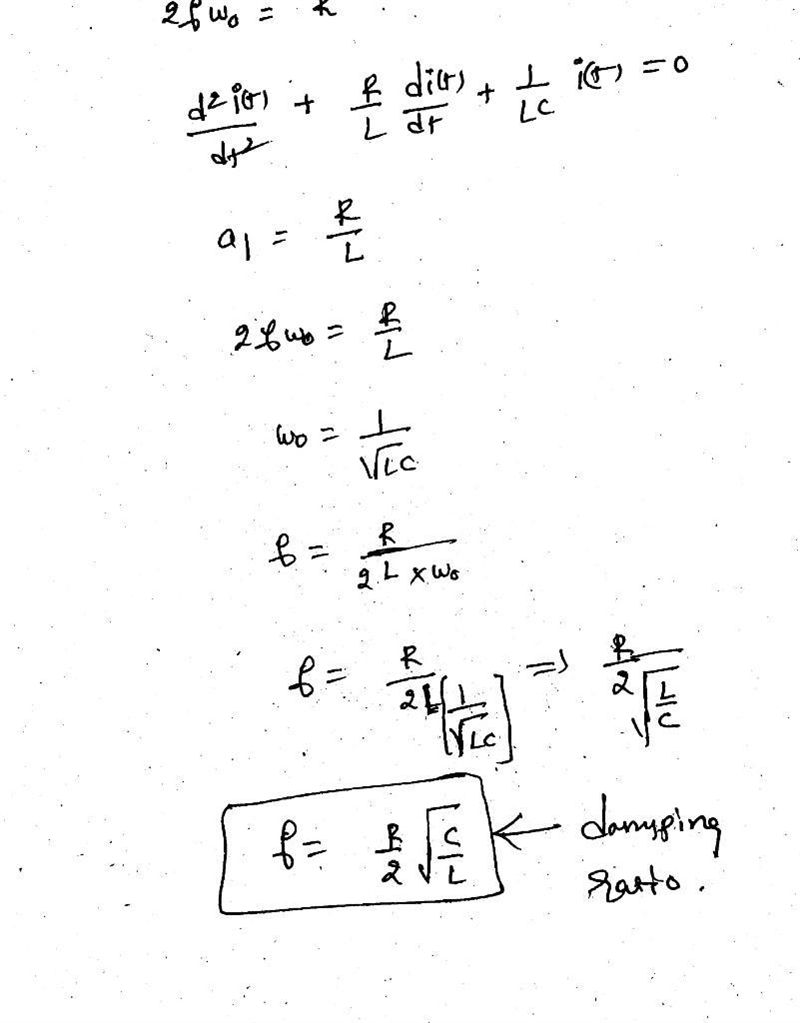 2ξω₀ =
d²i(t)/dt² + R/L di(t)/dt + 1/LC i(t) = 0
a₁ = R/L
2ξω₀ = R/L
ω₀ = 1/√LC
ξ = R/2L×ω₀
ξ = R/2L[1/√LC] ⇒ R/2√(L/C)
ξ = R/2 √(C/L) ← damping
ratio.